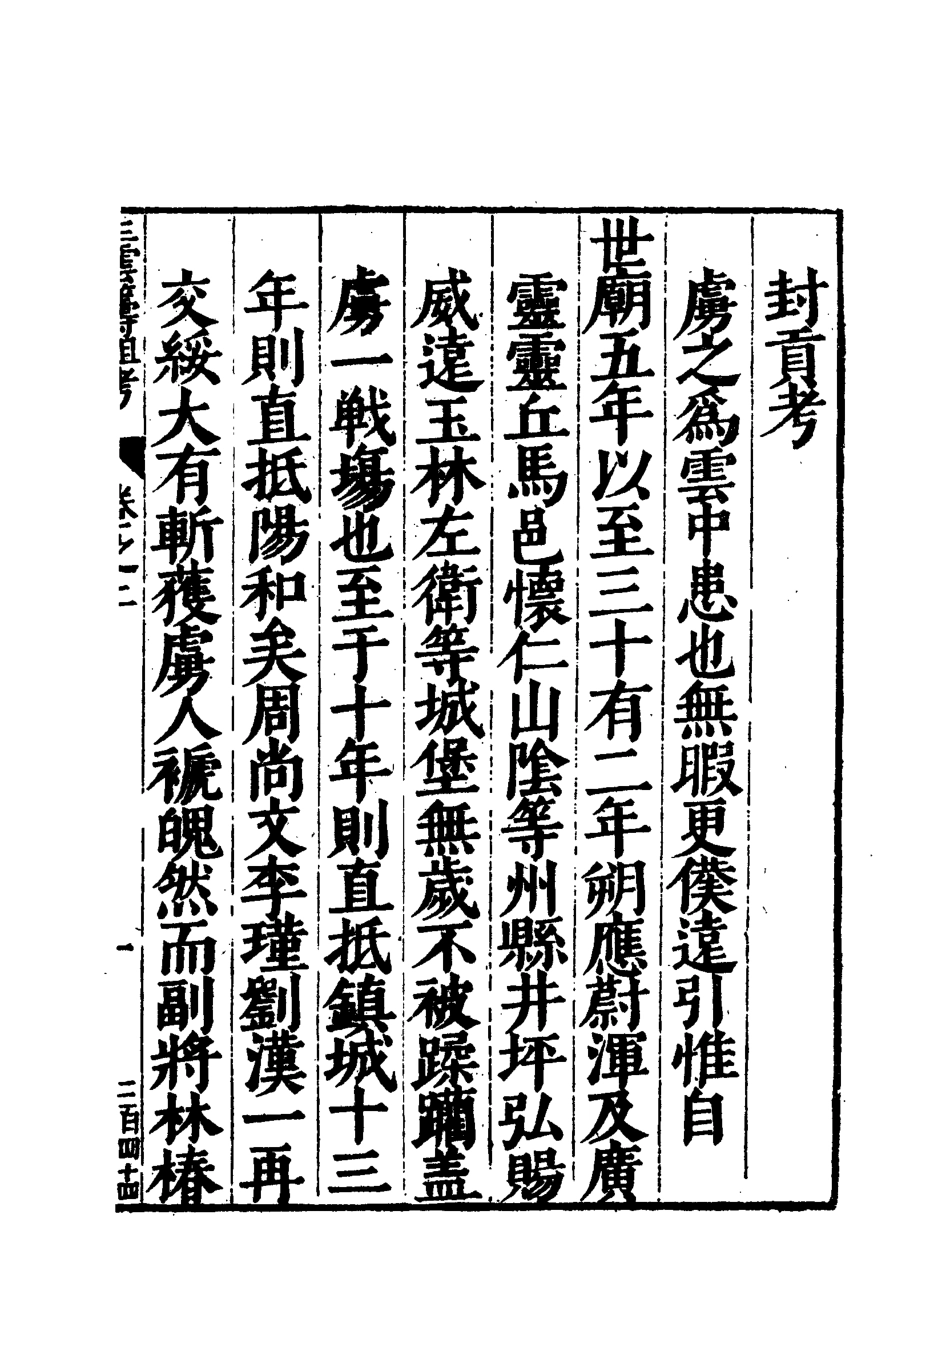 封貢考
虜之爲雲中患也無暇更僕遠引惟自
世廟五年以至三十有二年朔應蔚渾及廣
靈靈丘馬邑懷仁山陰等州縣井坪弘賜
威遠玉林左衛等城堡無歲不被蹂躪盖
虜一戦塲也至于十年則直抵鎮城十三
年則直抵陽和矣周尚文李瑾劉漢一再
交綏大有斬獲虜人褫魄然而副將林椿
三雲籌俎考 卷之二 一 二百四十四